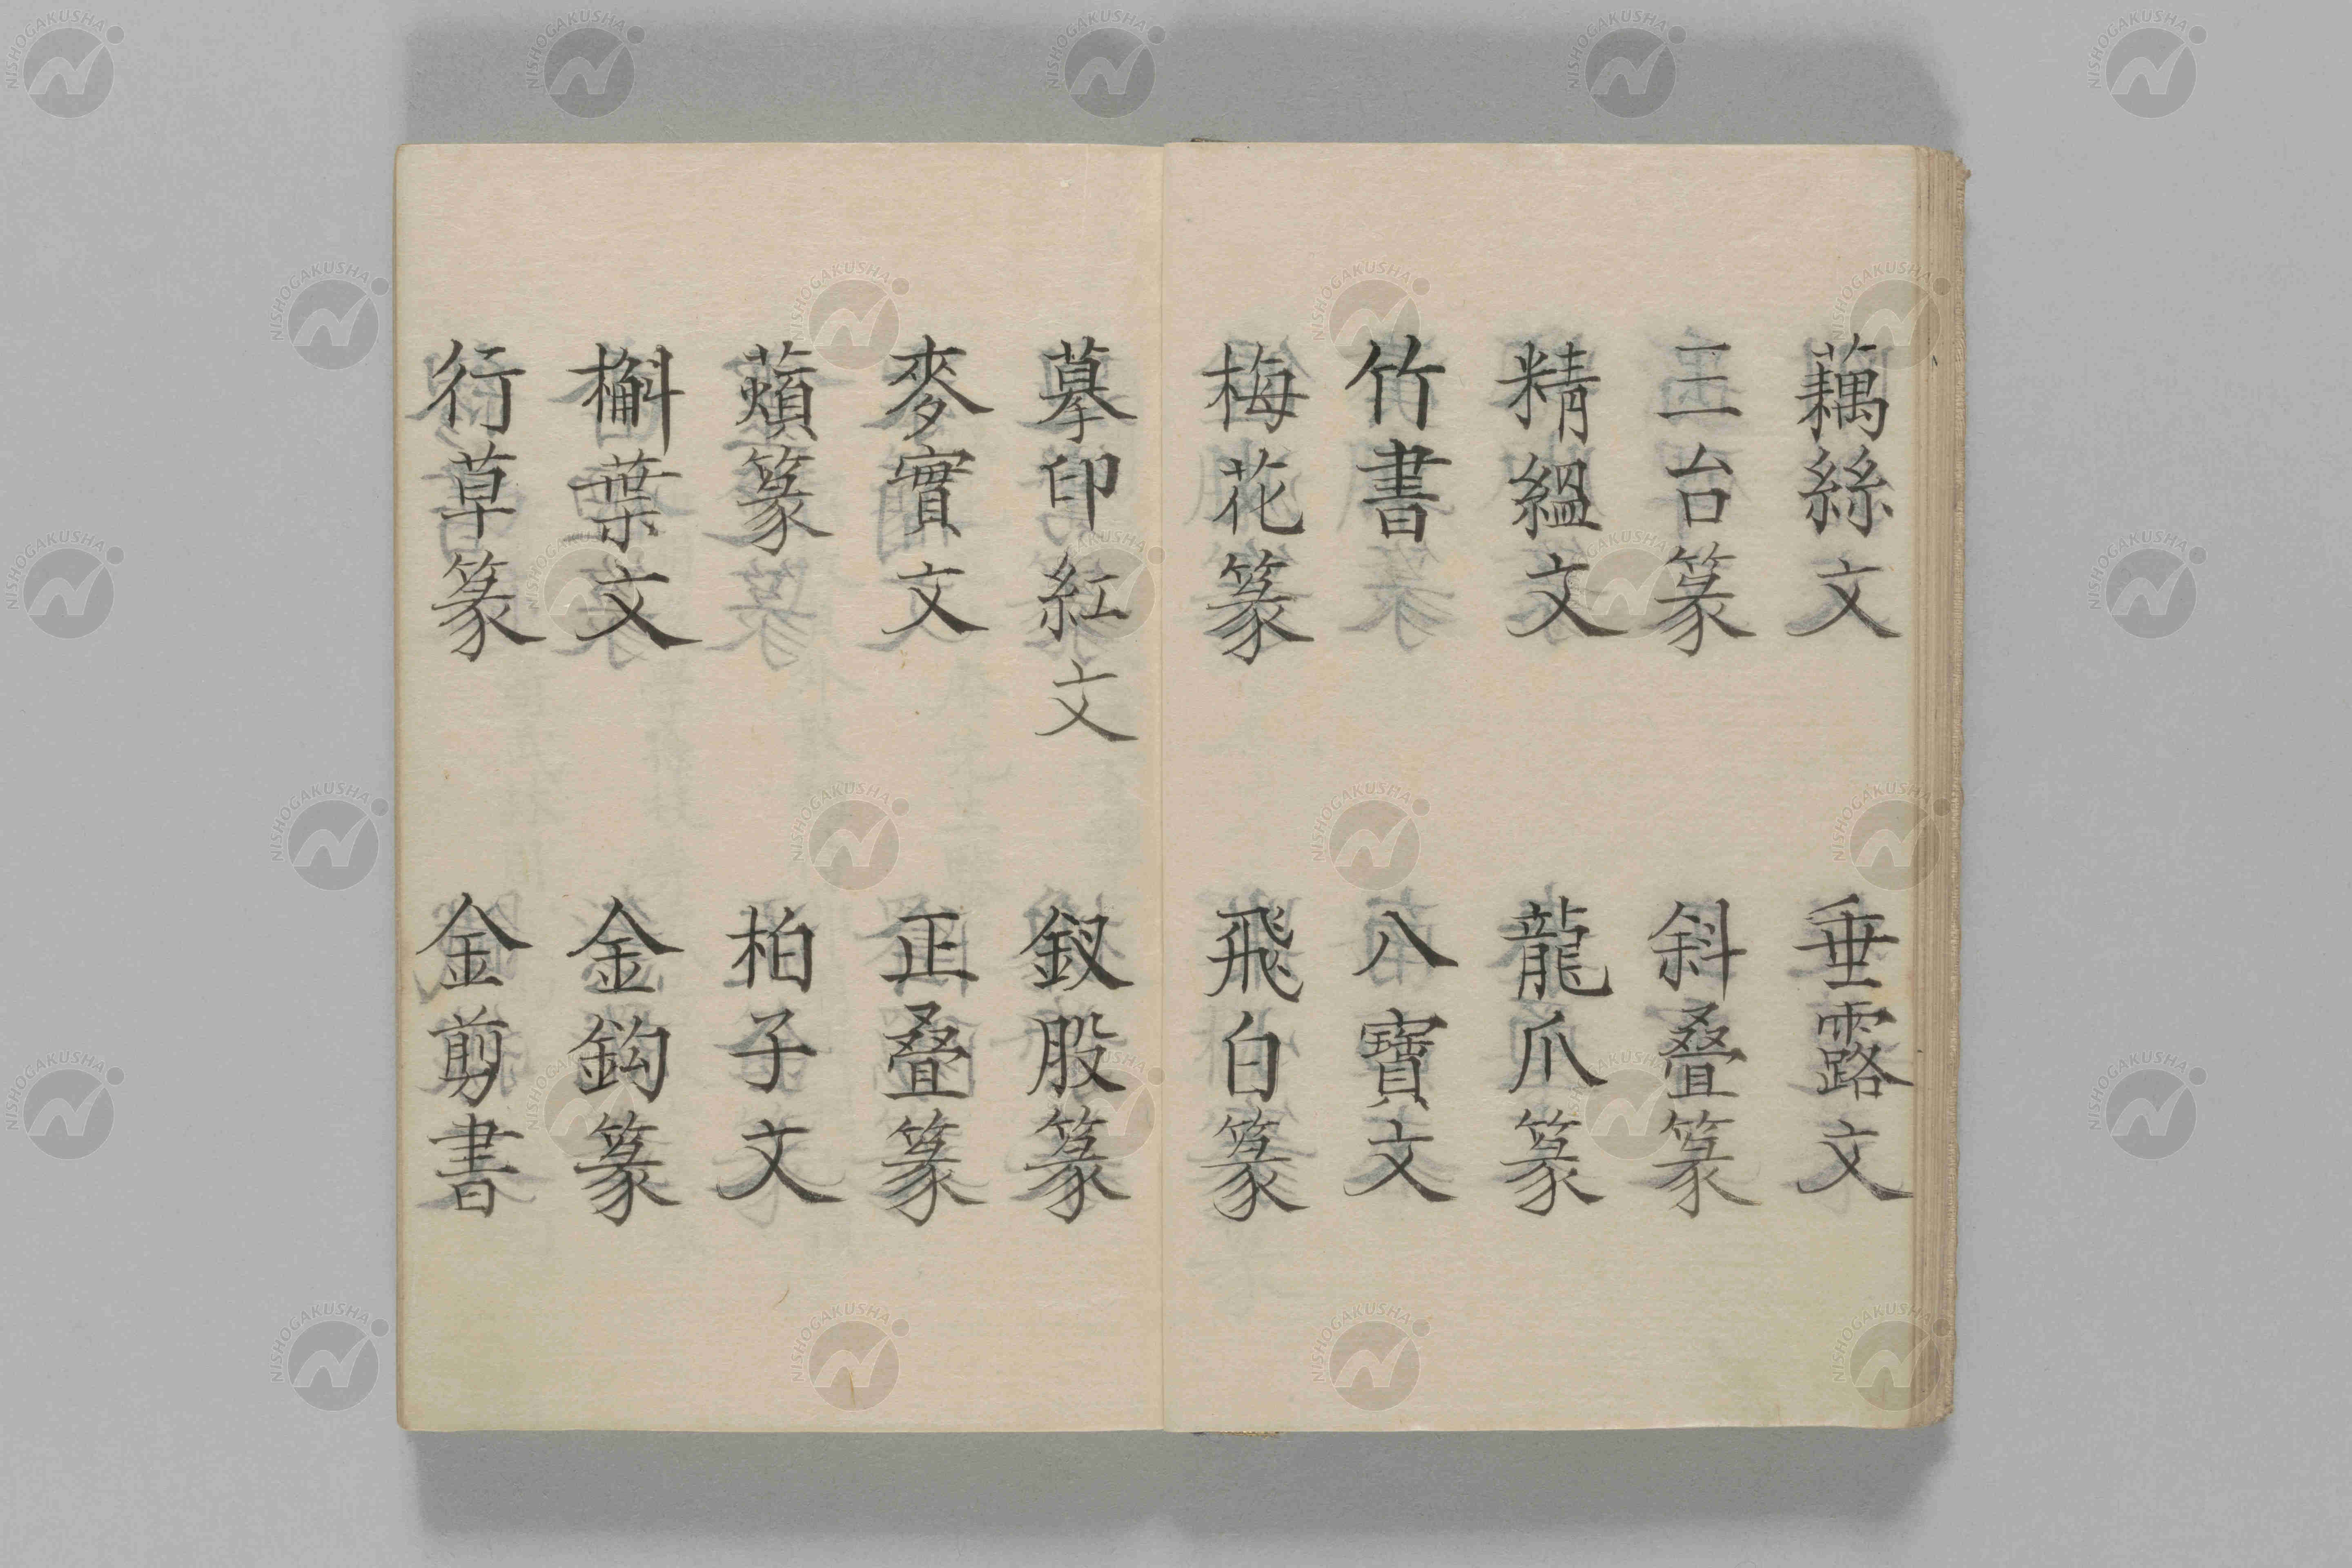 藕絲文
垂露文
三台篆
斜疊篆
精縕文
龍爪篆
竹書
八寶文
梅花篆
飛白篆
摹印紅文
釵股篆
麥實文
正疊篆
薠篆
柏子文
槲葉文
金鈎篆
行草篆
金剪書